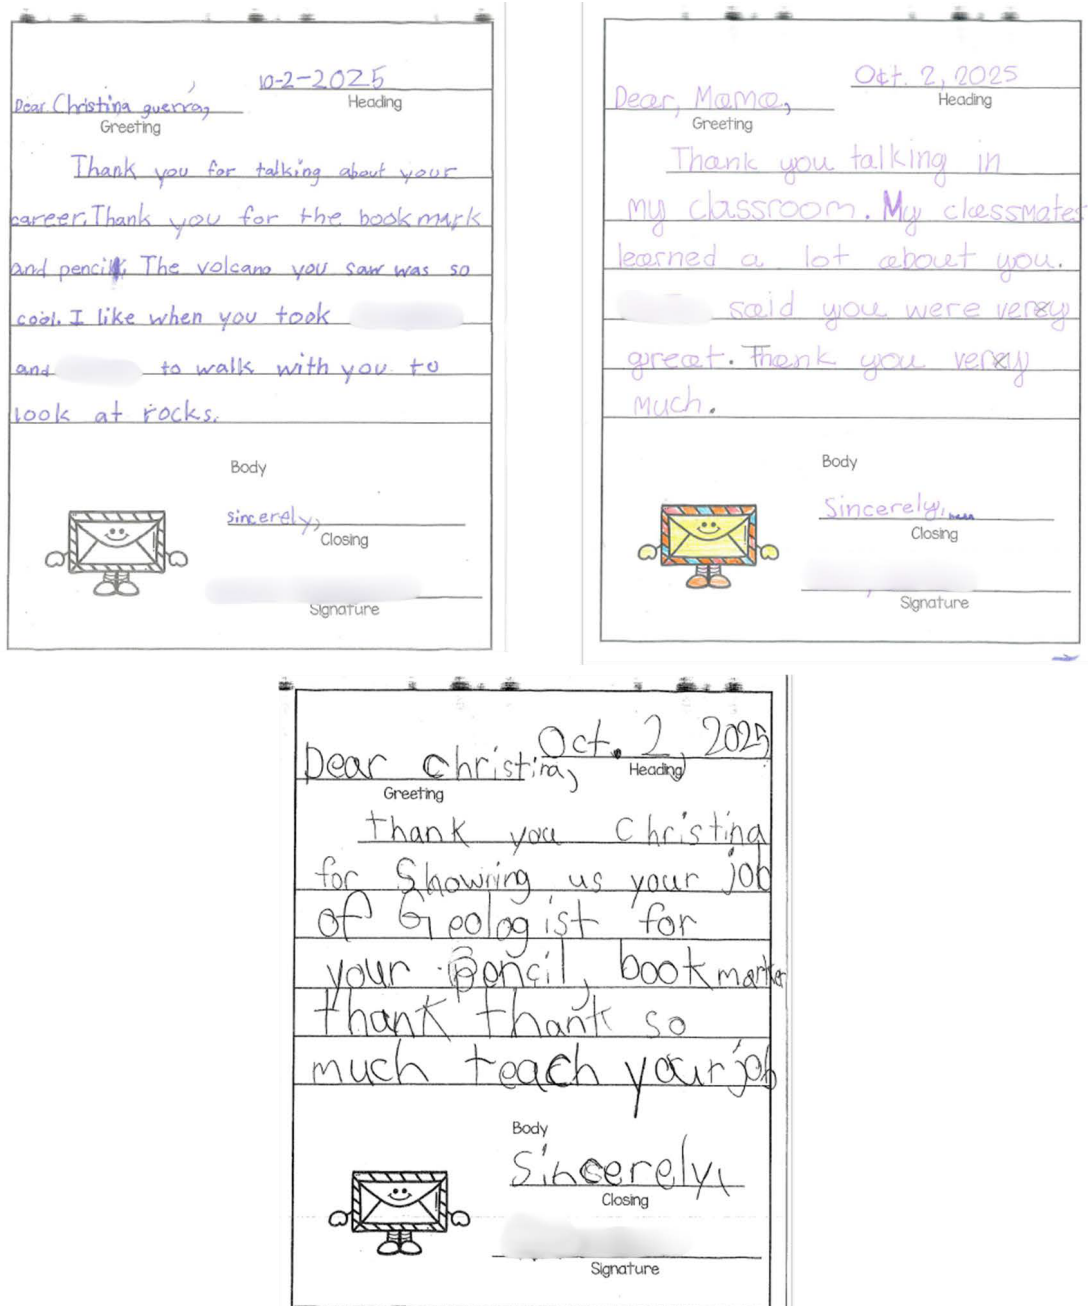 10-2-2025
Heading
Dear Christina guerra,
Greeting
Thank you for talking about your
career. Thank you for the bookmark
and pencil. The volcano you saw was so
cool. I like when you took
and to walk with you to
look at rocks.
Body
Sincerely,
Closing
Signature
Oct. 2, 2025
Heading
Dear, Mama,
Greeting
Thank you talking in
my classroom. My classmates
learned a lot about you.
said you were very
great. Thank you very
much.
Body
Sincerely,
Closing
Signature
Oct. 2, 2025
Heading
Dear Christina,
Greeting
thank you Christina
for Showing us your job
of Geologist for
your pencil, bookmarker
thank thank so
much teach your job
Body
Sincerely,
Closing
Signature